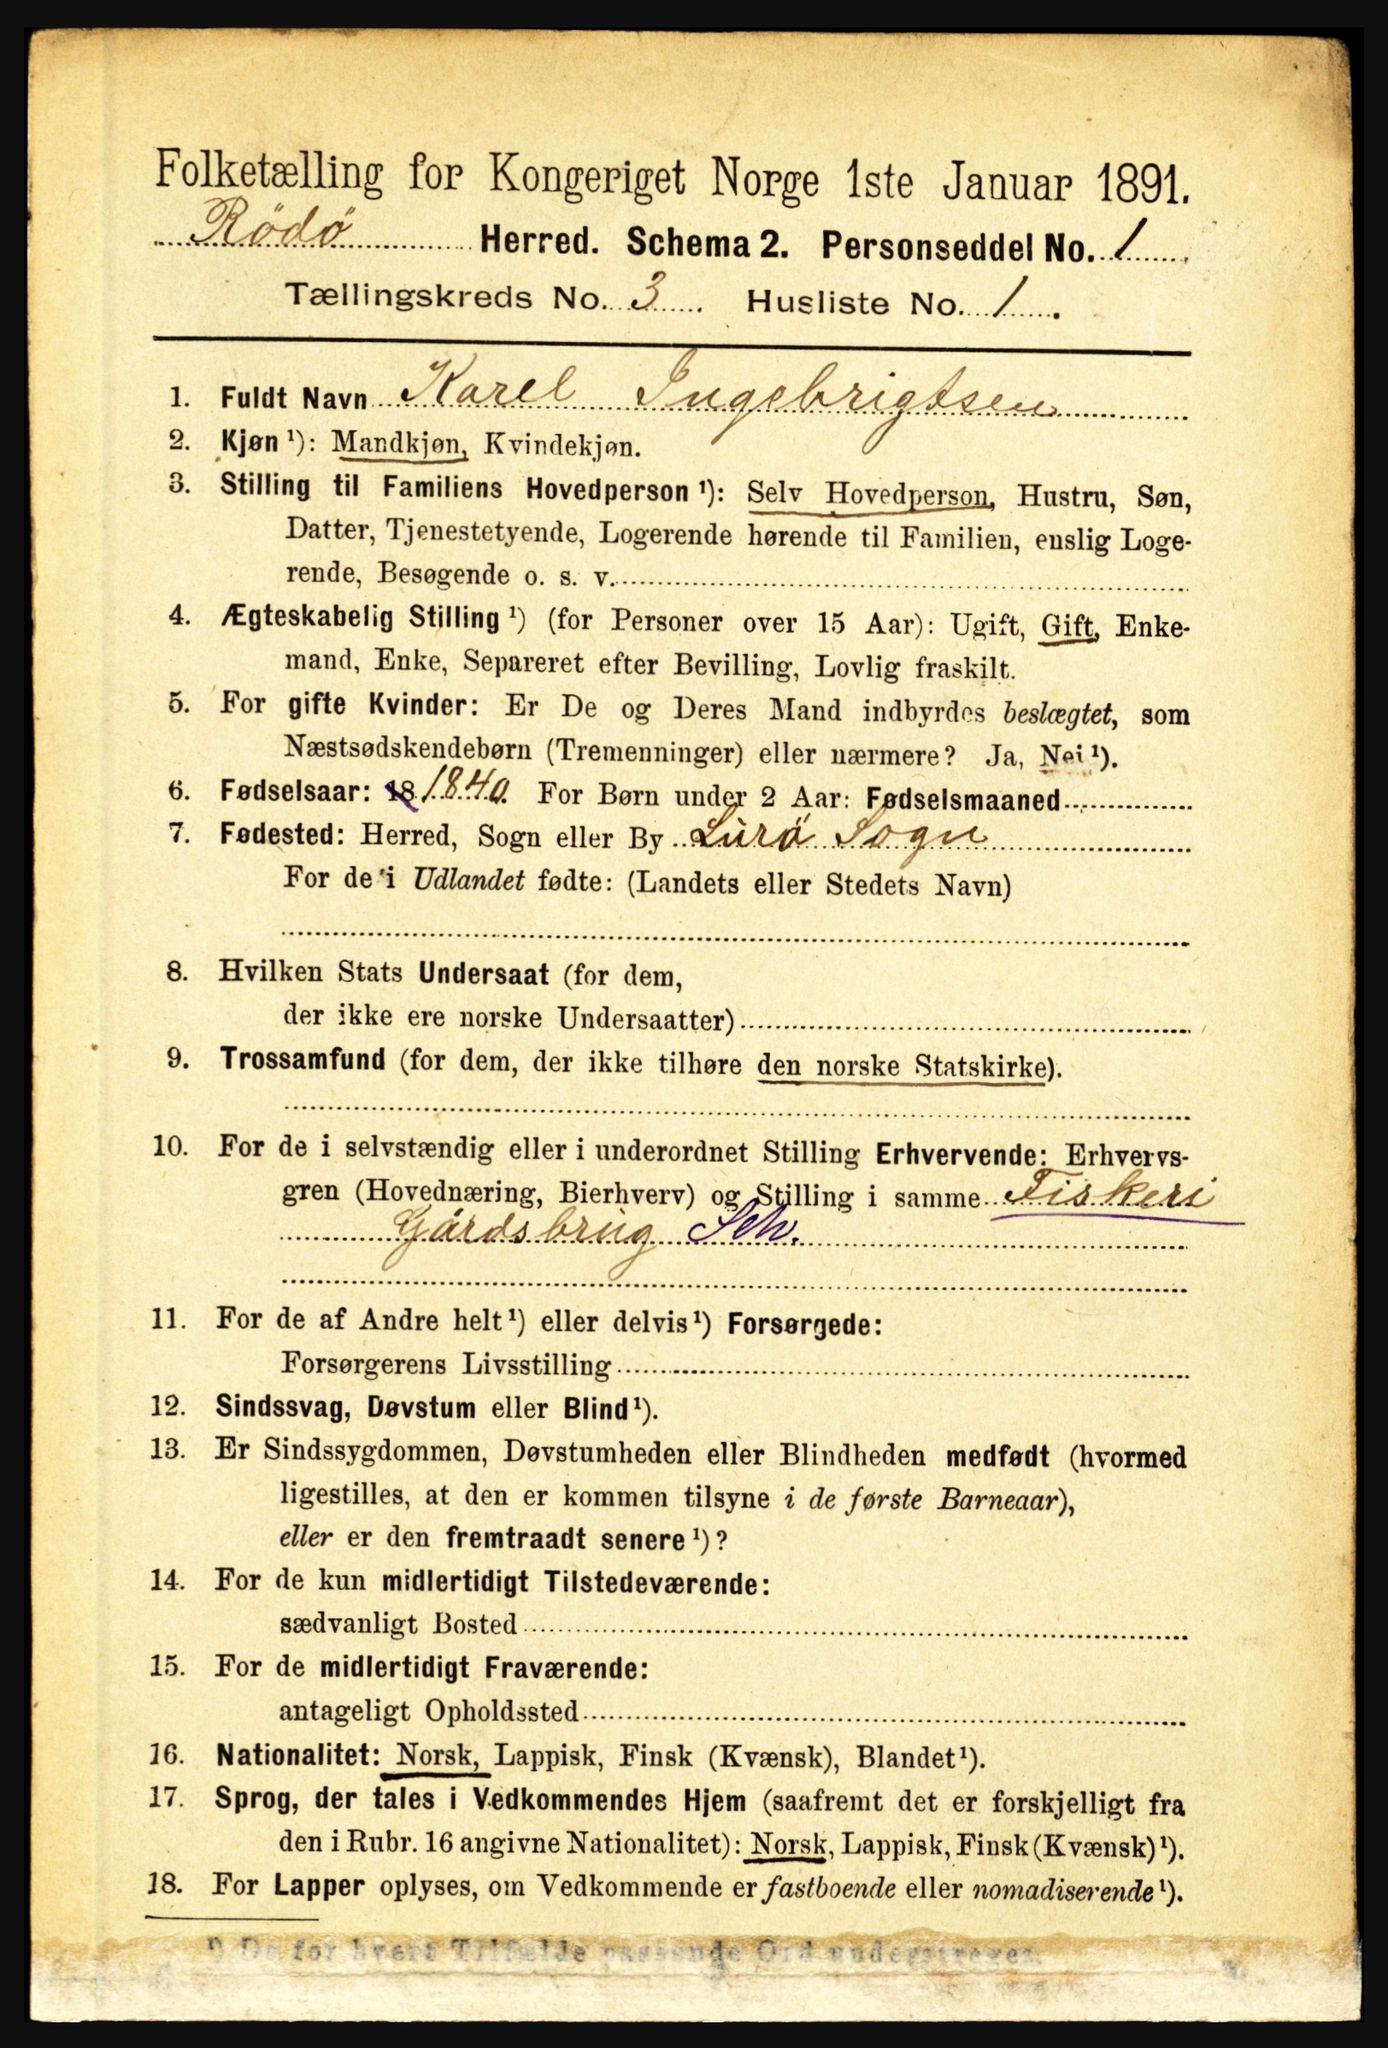 Folketælling for Kongeriget Norge 1ste Januar 1891.
Rödö Herred. Schema 2. Personseddel No. 1
Tællingskreds No. 3. Husliste No. 1.
1. Fuldt Navn Karel Ingebrigtsen
2. Kjøn ¹): Mandkjøn, Kvindekjøn.
3. Stilling til Familiens Hovedperson ¹): Selv Hovedperson, Hustru, Søn,
Datter, Tjenestetyende, Logerende hørende til Familien, enslig Loge-
rende, Besøgende o. s. v.
4. Ægteskabelig Stilling ¹) (for Personer over 15 Aar): Ugift, Gift, Enke-
mand, Enke, Separeret efter Bevilling, Lovlig fraskilt.
5. For gifte Kvinder: Er De og Deres Mand indbyrdes beslægtet, som
Næstsødskendebørn (Tremenninger) eller nærmere? Ja, Nei ¹).
6. Fødselsaar: 18 1840. For Børn under 2 Aar: Fødselsmaaned
7. Fødested: Herred, Sogn eller By Lurö Sogn
For de i Udlandet fødte: (Landets eller Stedets Navn)
8. Hvilken Stats Undersaat (for dem,
der ikke ere norske Undersaatter)
9. Trossamfund (for dem, der ikke tilhøre den norske Statskirke).
10. For de i selvstændig eller i underordnet Stilling Erhvervende: Erhvervs-
gren (Hovednæring, Bierhverv) og Stilling i samme Fiskeri
Gårdsbrug Selv.
11. For de af Andre helt ¹) eller delvis ¹) Forsørgede:
Forsørgerens Livsstilling
12. Sindssvag, Døvstum eller Blind ¹).
13. Er Sindssygdommen, Døvstumheden eller Blindheden medfødt (hvormed
ligestilles, at den er kommen tilsyne i de første Barneaar),
eller er den fremtraadt senere ¹)?
14. For de kun midlertidigt Tilstedeværende:
sædvanligt Bosted
15. For de midlertidigt Fraværende:
antageligt Opholdssted
16. Nationalitet: Norsk, Lappisk, Finsk (Kvænsk), Blandet ¹).
17. Sprog, der tales i Vedkommendes Hjem (saafremt det er forskjelligt fra
den i Rubr. 16 angivne Nationalitet): Norsk, Lappisk, Finsk (Kvænsk) ¹).
18. For Lapper oplyses, om Vedkommende er fastboende eller nomadiserende ¹).
¹) De for hvert Tilfælde passende Ord understreges.